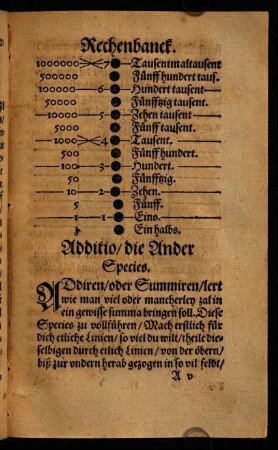 Rechenbanck.
1000000 7 Tausentmaltausent
500000 Fünff hundert taus.
100000 6 Hundert tausent
50000 Fünfftzig tausent.
10000 5 Zehen tausent
5000 Fünff tausent.
1000 4 Tausent.
500 Fünff hundert.
100 3 Hundert.
50 Fünfftzig.
10 2 Zehen.
5 Fünff.
1 1 Eins.
Ein halbs.
Additio/ die Ander
Species.
ADdiren/ oder Summiren/ lert
wie man viel oder mancherley zal in
ein gewisse summa bringen soll. Diese
Species zu vollführen/ Mach erstlich für
dich etliche Linien/ so viel du wilt/ theile die-
selbigen durch etlich Linien/ von der öbern/
biß zur vndern herab gezogen in so vil feldt/
A v